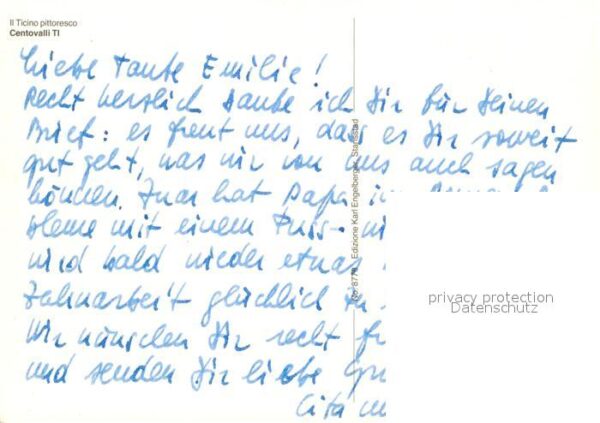 Il Ticino pittoresco
Centovalli TI
Liebe Tante Emilie!
Recht herzlich danke ich Dir für Deinen
Brief: es freut uns, dass es Dir soweit
gut geht, was wir von uns auch sagen
können. Zwar hat Papa
bleme mit einem Fuss
wird bald wieder etwas
Zahnarbeit glücklich
Wir wünschen Dir recht
und senden Dir liebe
Cita
No 8778 Edizione Karl Engelberger, Stansstad
privacy protection
Datenschutz